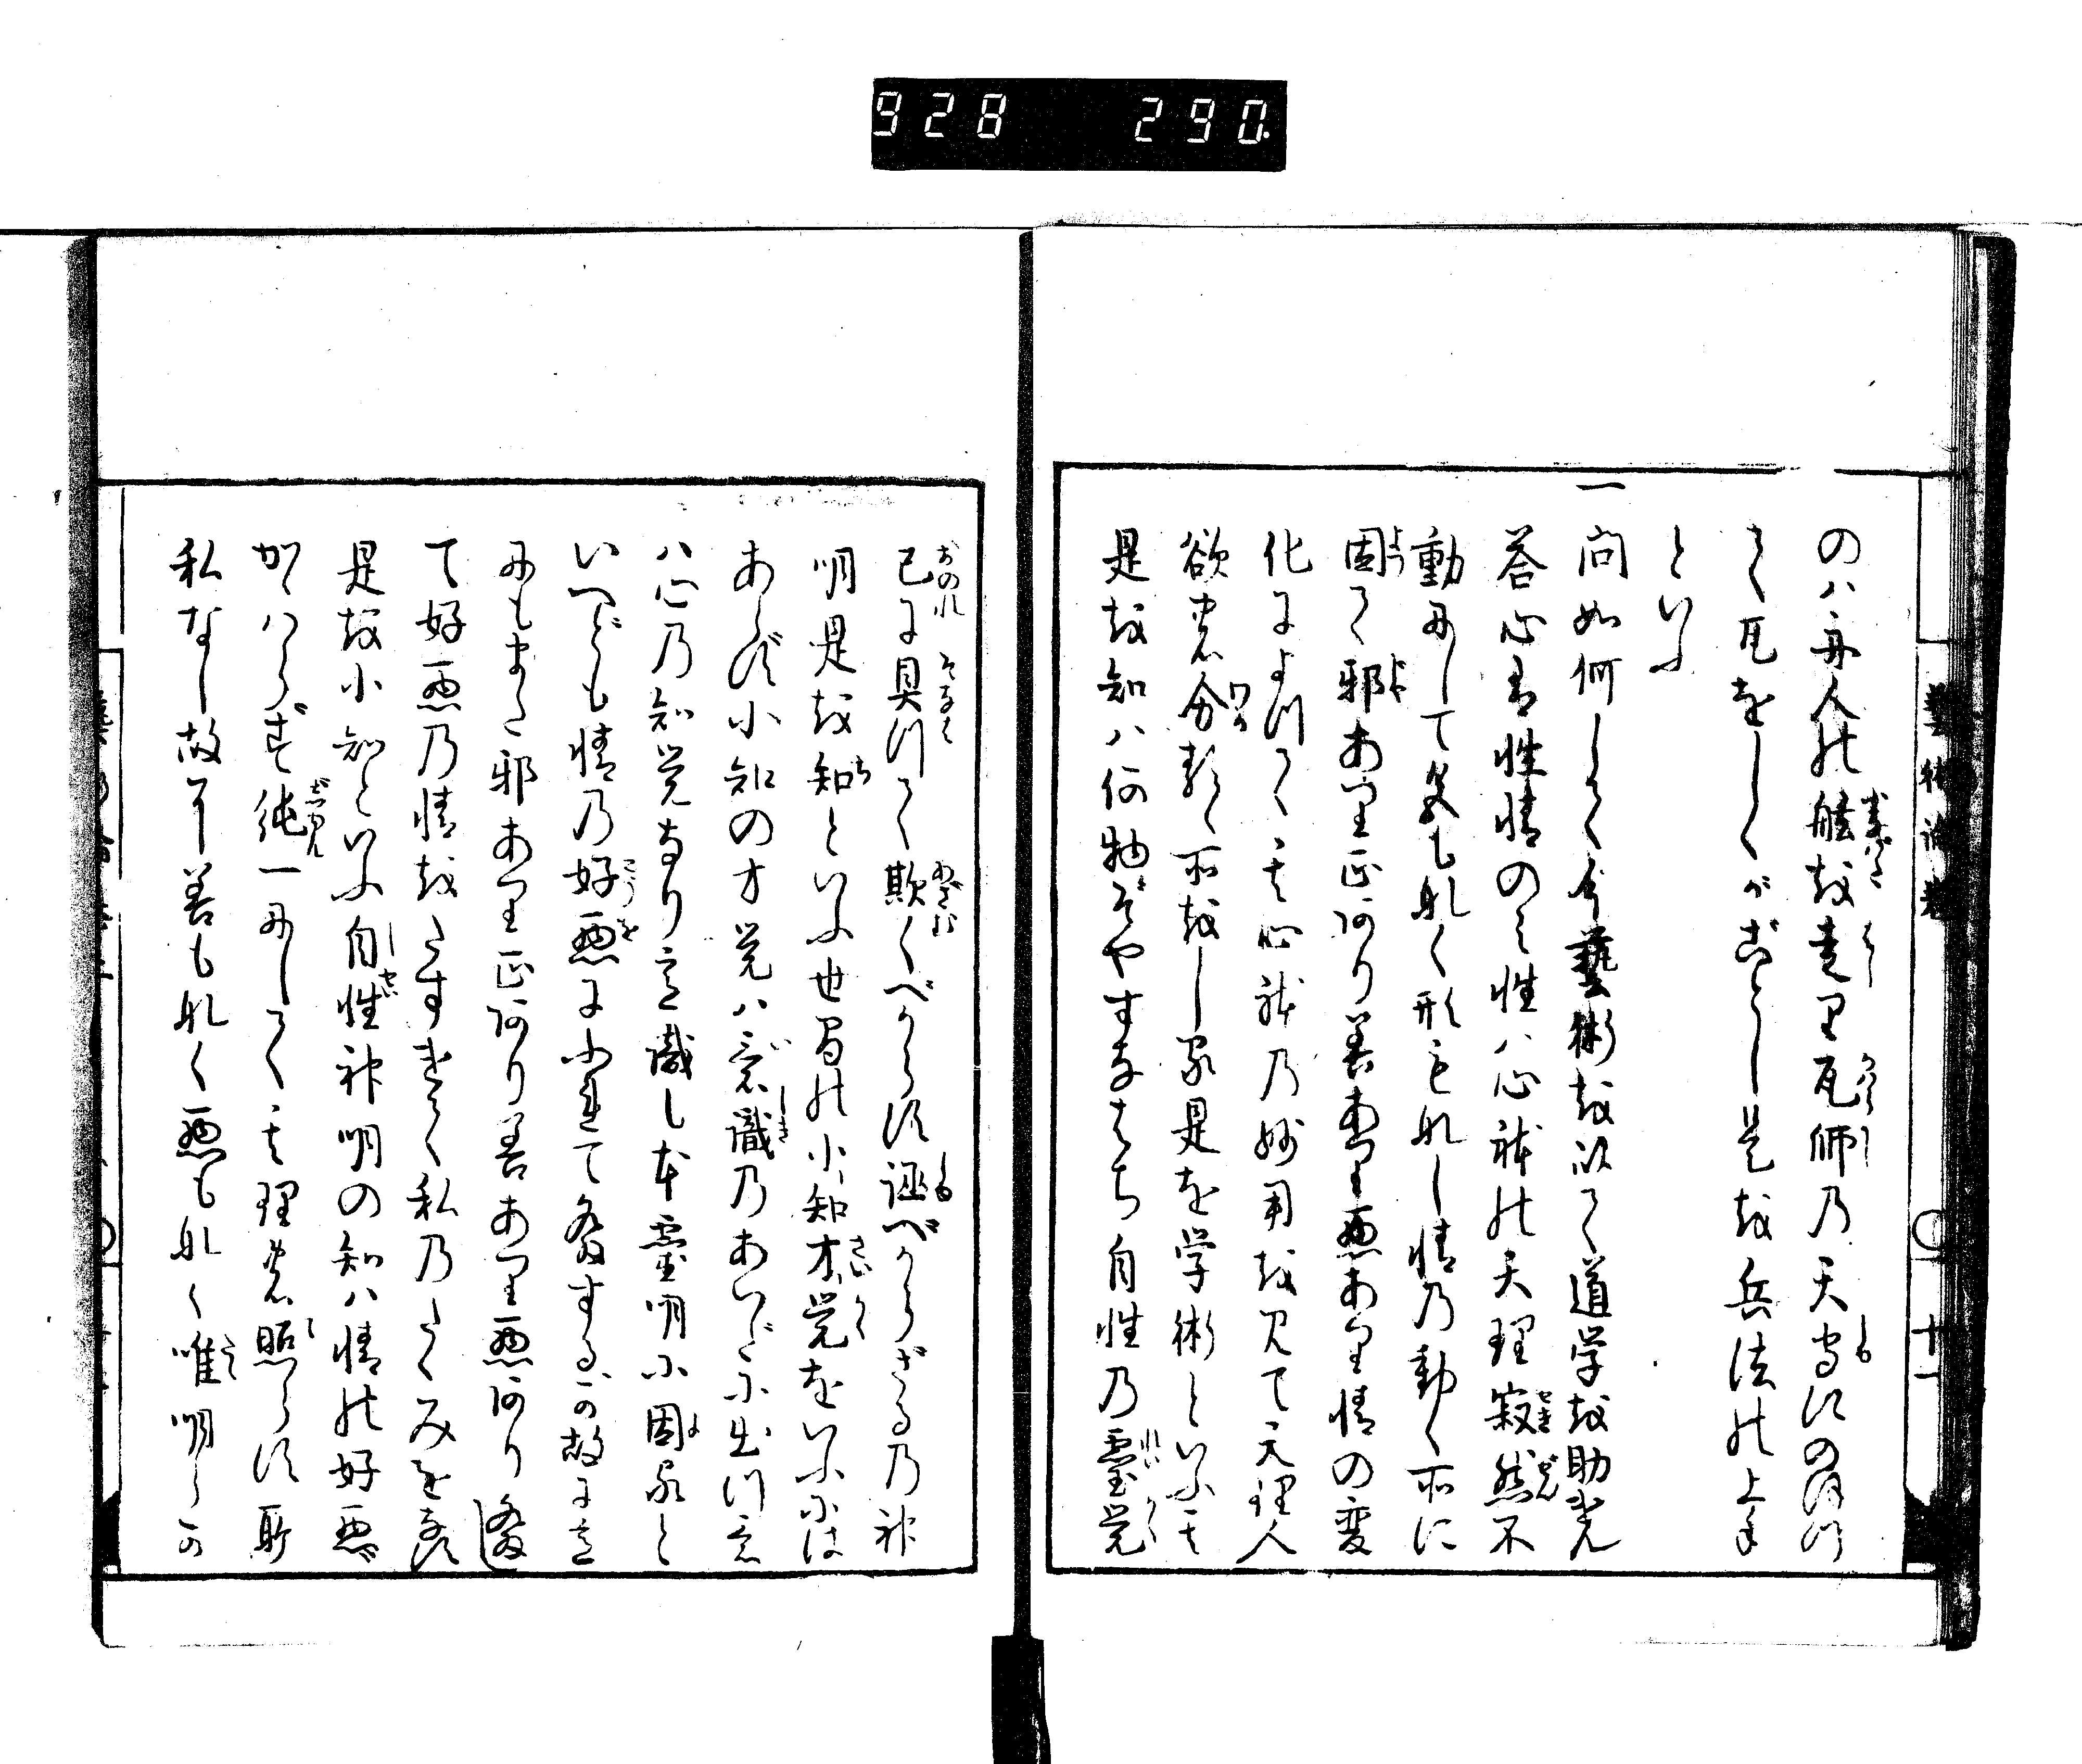 928 290
藝術論 巻
十一
のハ舟人の艫を走り瓦師の天守にのぼつ
て瓦をしくがごとし是を兵法の上手
といふ
一問如何してか藝術を以て道学を助けん
答心は性情のみ性ハ心体の天理寂然不
動にして色もなく形もなし情の動く所に
因て邪あり正あり善あり悪あり情の変
化によつて其心体の妙用を見て天理人
欲の分るゝ所をしる是を学術といふ其
是を知ハ何物ぞやすなはち自性の霊覚
己に具つて欺くべからず誣べからざるの神
明是を知といふ世間の小知才覚をいふには
あらず小知の才覚ハ意識のあいだに出づ意
ハ心の知覚なり意識し本霊明に因ると
いへども情の好悪に小蔽て發するが故に意
にもまた邪あり正あり善あり悪あり發
て好悪の情をたすけて私のたくみをなす
是を小知といふ自性神明の知ハ情の好悪に
かゝハらず純一にして其理の照らす所
私なし故に善もなく悪もなく唯明らか